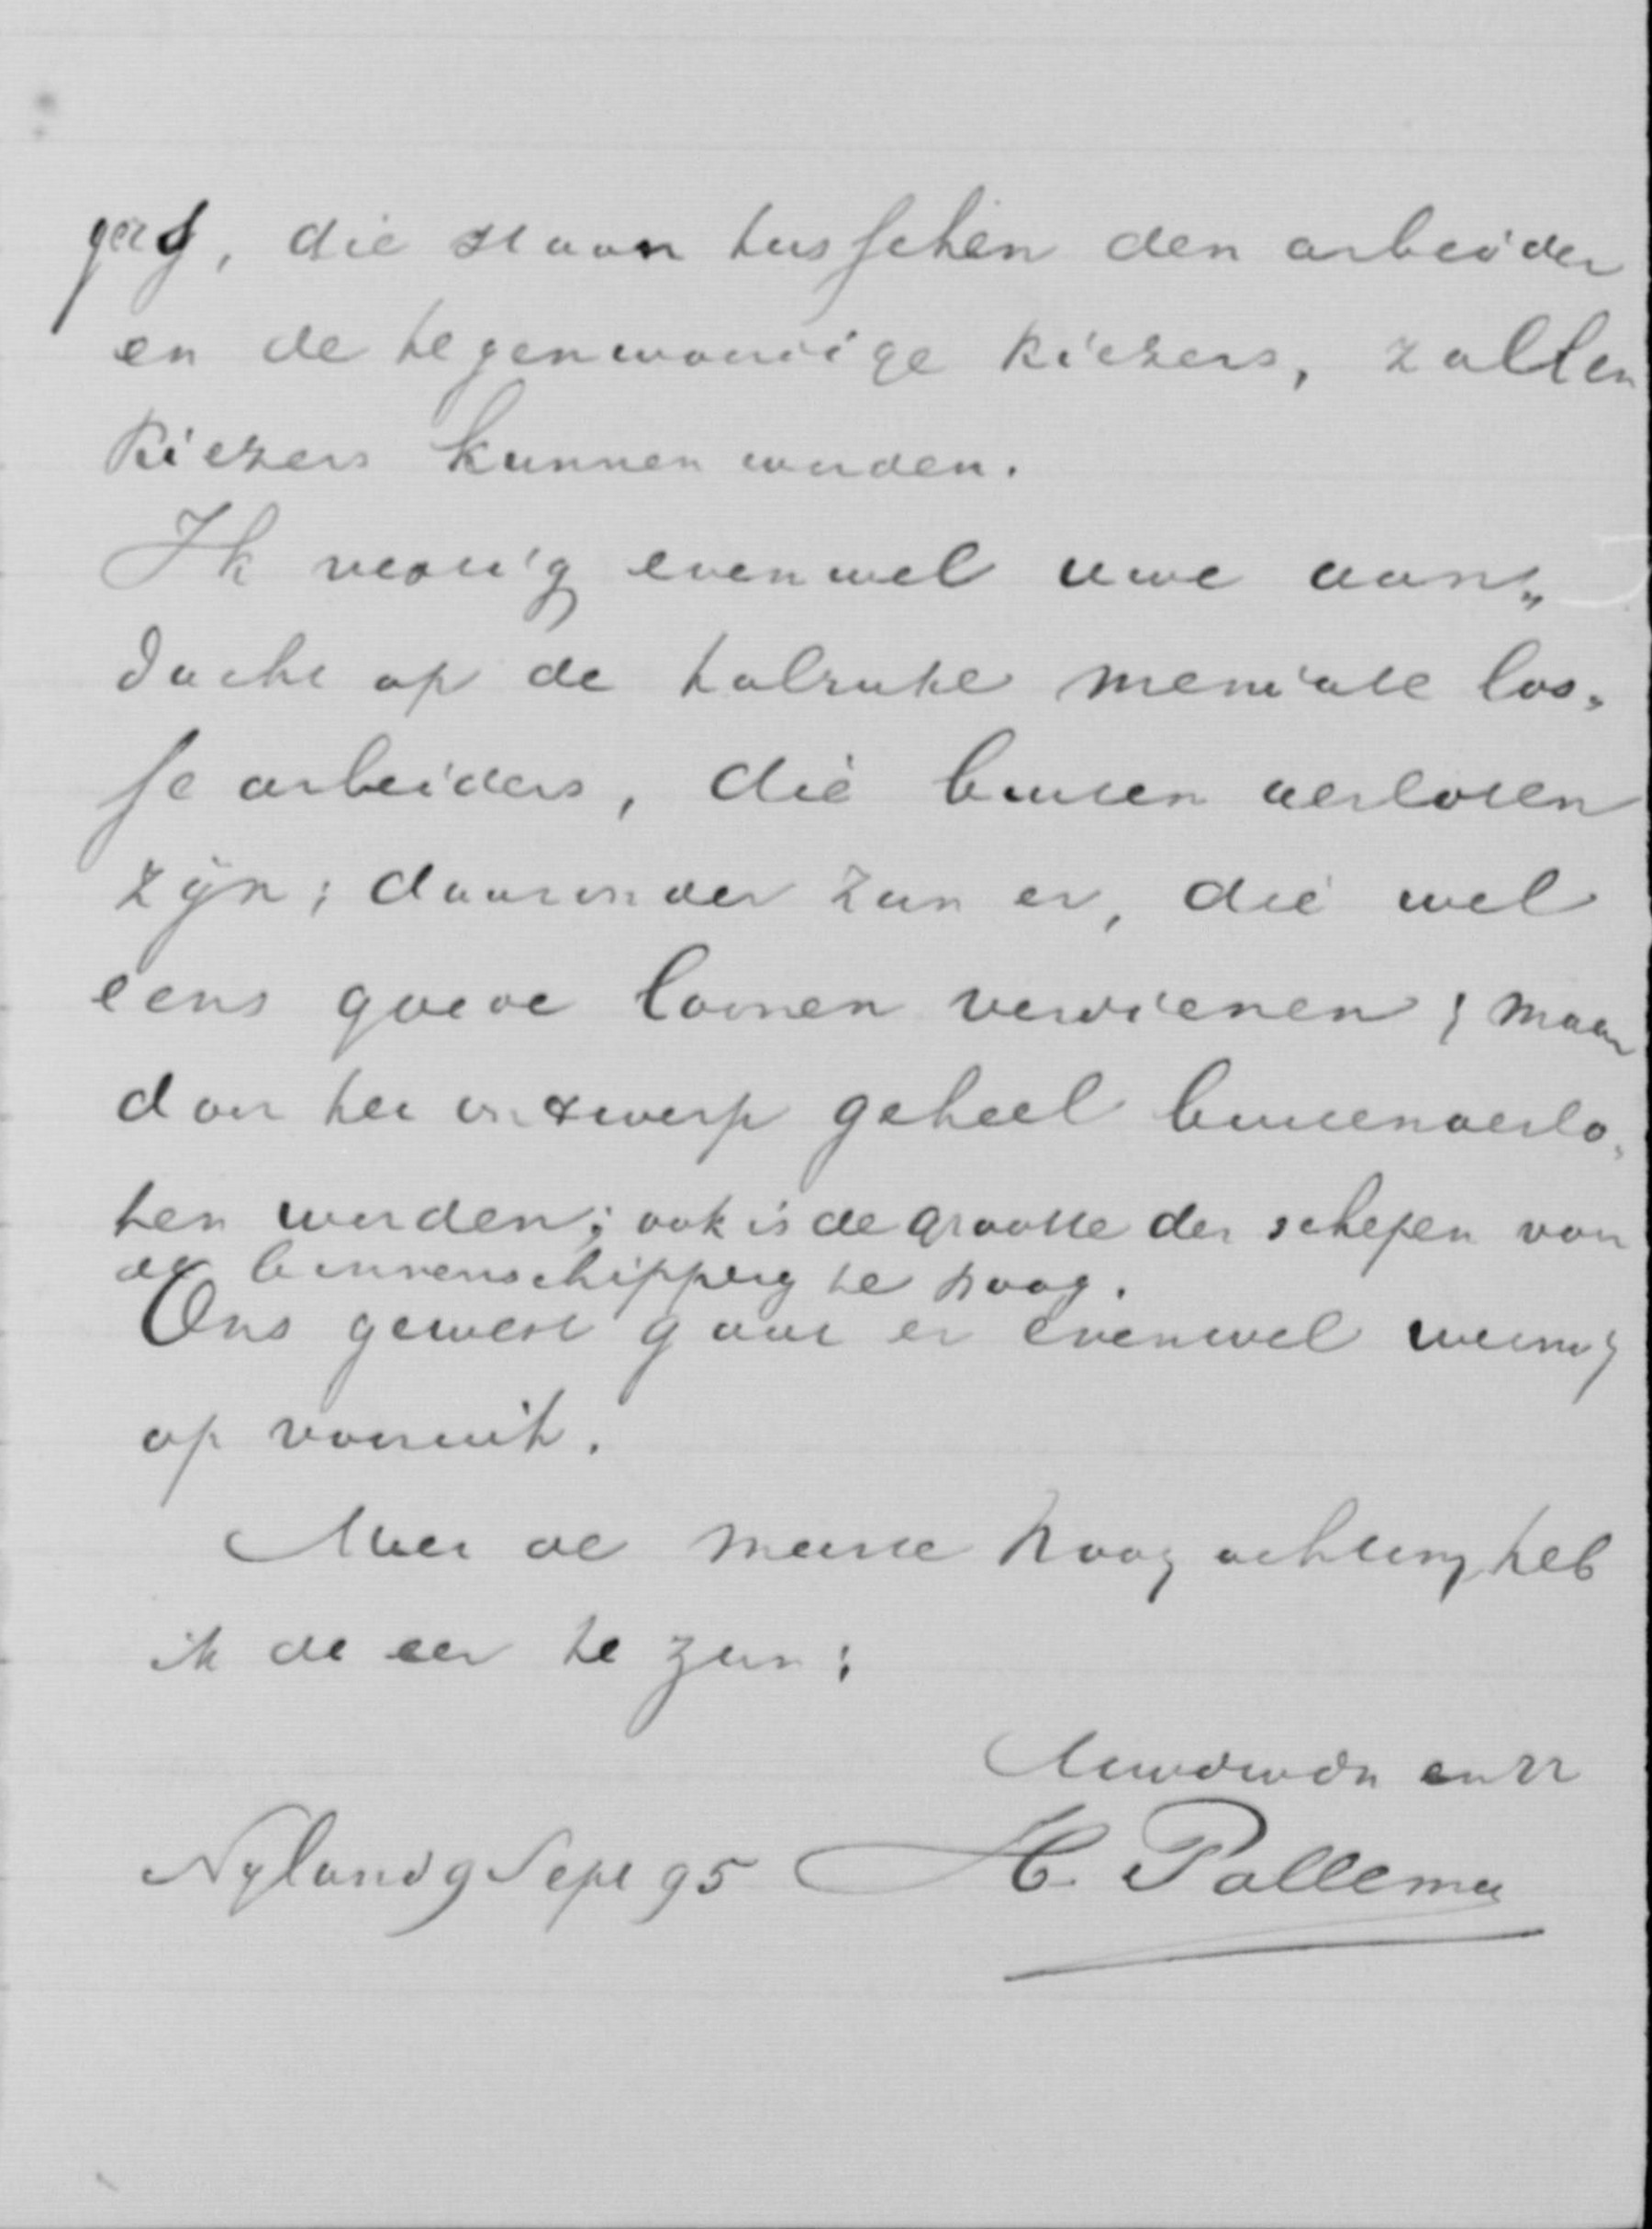 gers, die staan tusschen den arbeider
en de tegenwoordige kiezers, zullen
kiezers kunnen worden.
Ik vestig evenwel uwe aan„
dacht op de talrijke menigte los„
se arbeiders, die buiten gesloten
zijn; daaronder zijn er, die wel
eens goede loonen verdienen; maar
door het ontwerp geheel buitengeslo„
ten worden; ook is de grootte der schepen van
de binnenschipperij te hoog.
Ons gewest gaat er evenwel weinig
op vooruit.
Met de meeste hoogachting heb
ik de eer te zijn:
en
Nyland 9 Sept 95 H. Pollema